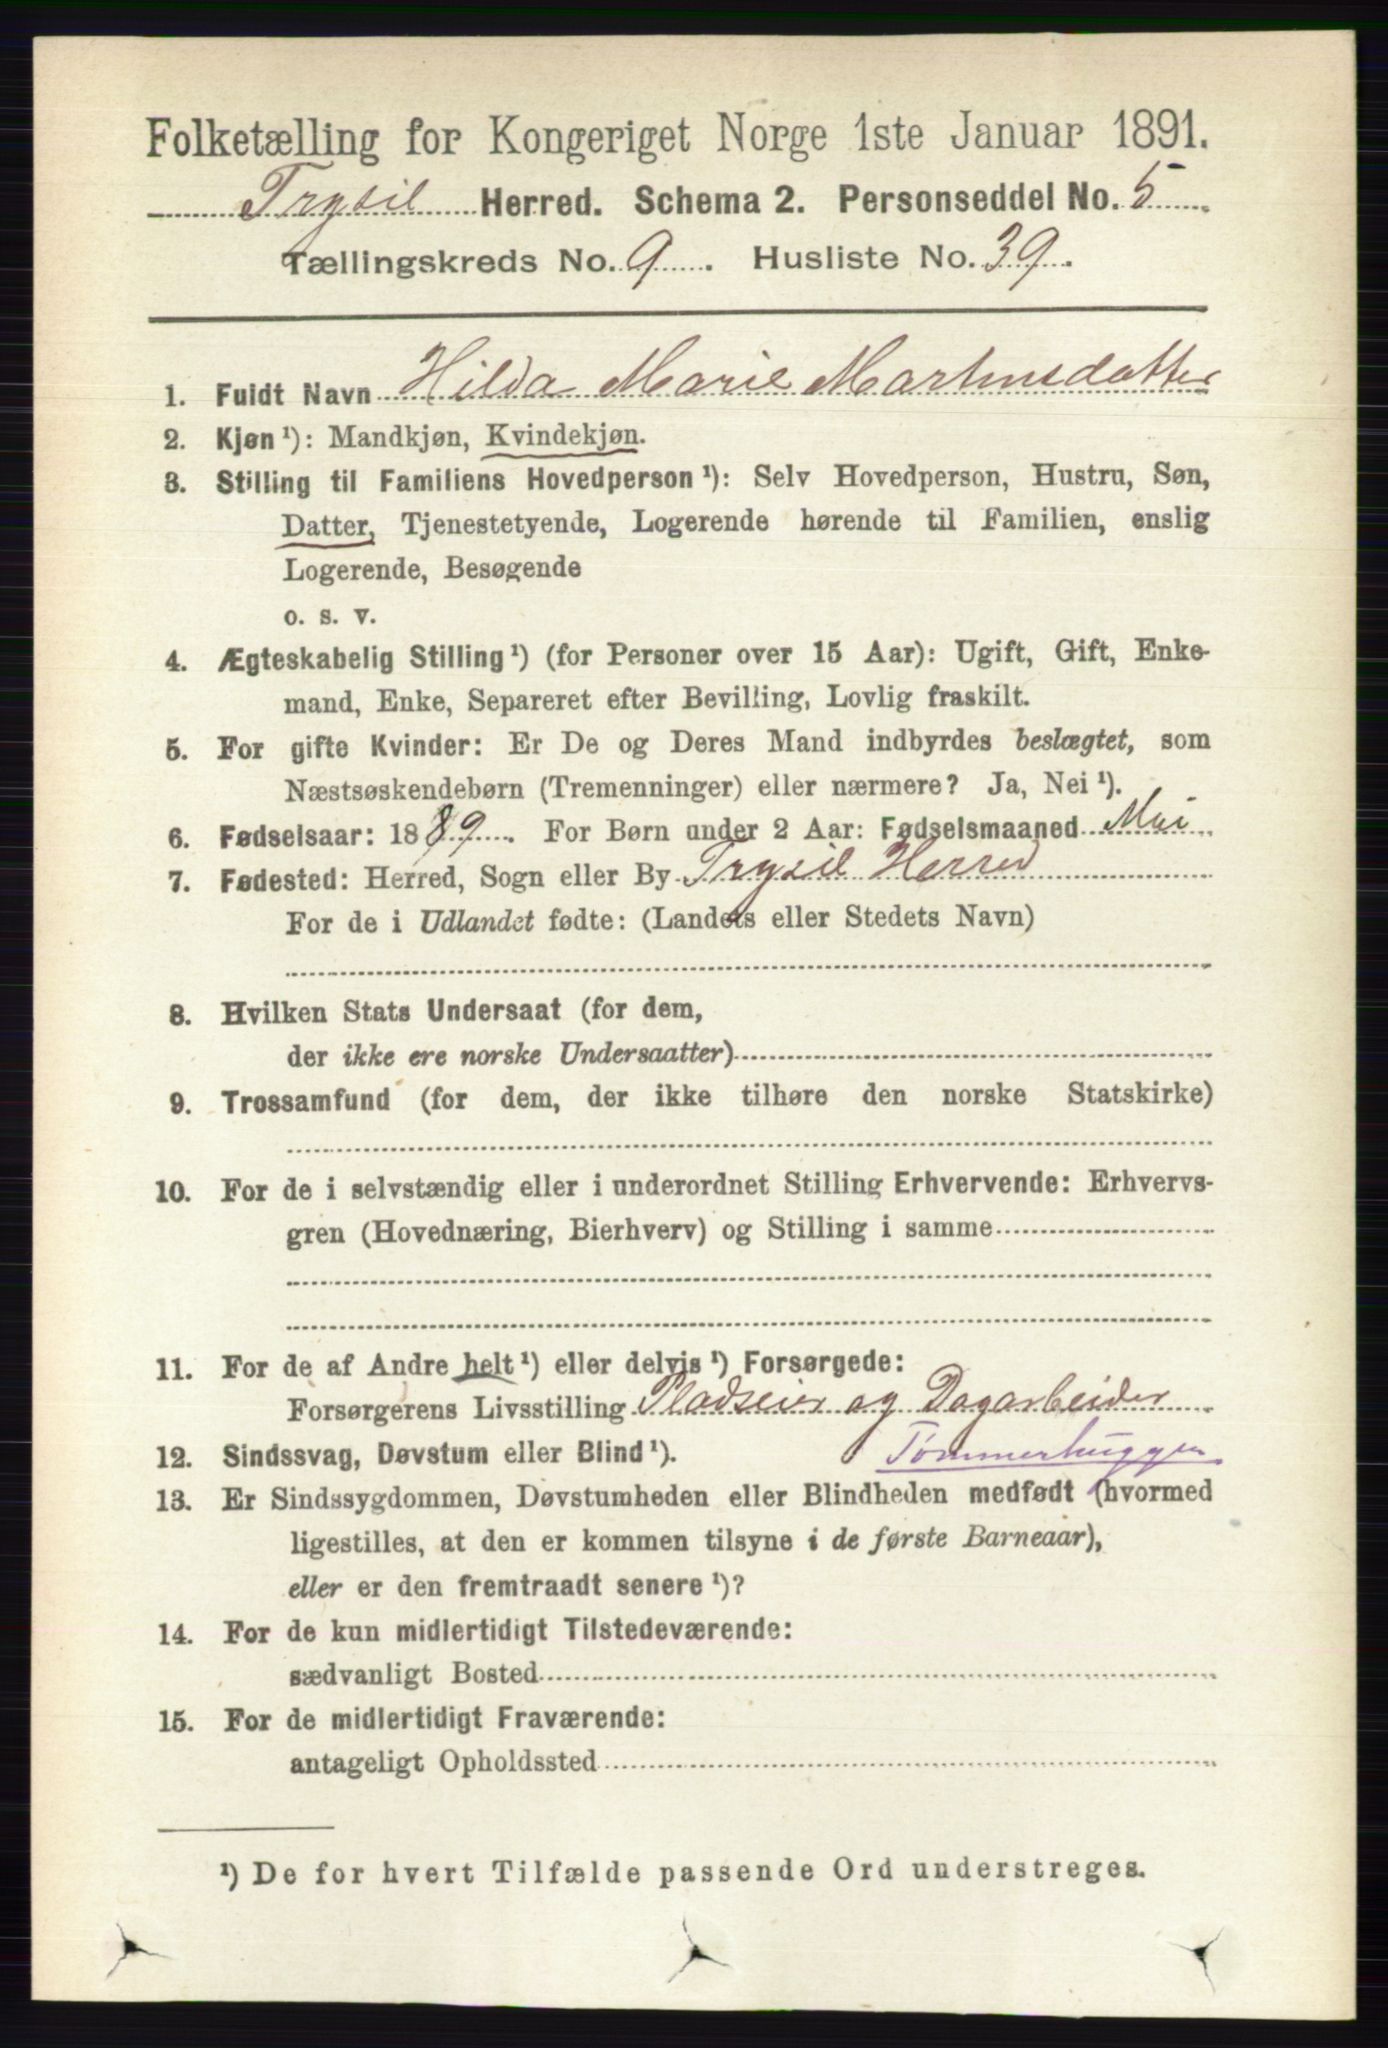 Folketælling for Kongeriget Norge 1ste Januar 1891.
Trysil Herred. Schema 2. Personseddel No. 5
Tællingskreds No. 9. Husliste No. 39.
1. Fuldt Navn Hilda Marie Martinsdatter
2. Kjøn ¹): Mandkjøn, Kvindekjøn.
3. Stilling til Familiens Hovedperson ¹): Selv Hovedperson, Hustru, Søn,
Datter, Tjenestetyende, Logerende hørende til Familien, enslig
Logerende, Besøgende
o. s. v.
4. Ægteskabelig Stilling ¹) (for Personer over 15 Aar): Ugift, Gift, Enke-
mand, Enke, Separeret efter Bevilling, Lovlig fraskilt.
5. For gifte Kvinder: Er De og Deres Mand indbyrdes beslægtet, som
Næstsøskendebørn (Tremenninger) eller nærmere? Ja, Nei ¹).
6. Fødselsaar: 1889. For Børn under 2 Aar: Fødselsmaaned Mai
7. Fødested: Herred, Sogn eller By Trysil Herred
For de i Udlandet fødte: (Landets eller Stedets Navn)
8. Hvilken Stats Undersaat (for dem,
der ikke ere norske Undersaatter)
9. Trossamfund (for dem, der ikke tilhøre den norske Statskirke)
10. For de i selvstændig eller i underordnet Stilling Erhvervende: Erhvervs-
gren (Hovednæring, Bierhverv) og Stilling i samme
11. For de af Andre helt ¹) eller delvis ¹) Forsørgede:
Forsørgerens Livsstilling Pladseier og Dagarbeider
12. Sindssvag, Døvstum eller Blind ¹). Tømmerhugger
13. Er Sindssygdommen, Døvstumheden eller Blindheden medfødt (hvormed
ligestilles, at den er kommen tilsyne i de første Barneaar),
eller er den fremtraadt senere ¹)?
14. For de kun midlertidigt Tilstedeværende:
sædvanligt Bosted
15. For de midlertidigt Fraværende:
antageligt Opholdssted
¹) De for hvert Tilfælde passende Ord understreges.